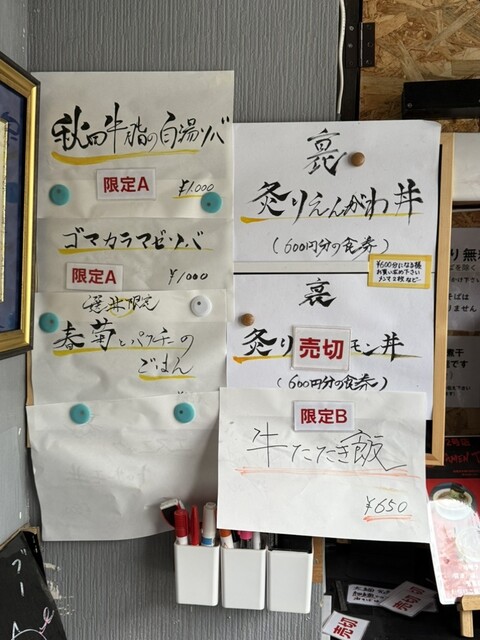 秋田牛脂の白湯ソバ
限定A
¥1.000
ゴマカラマゼソバ
限定A
¥1000
限定
春菊とパクチーの
ごはん
裏
炙りえんがわ丼
(600円分の食券)
¥600分になる様
お買い求め下さい
裏
炙り
売切
モン丼
(600円分の食券)
限定B
牛たたき飯
¥650
り無料
そばは
りません
煮干
です
売切
売切